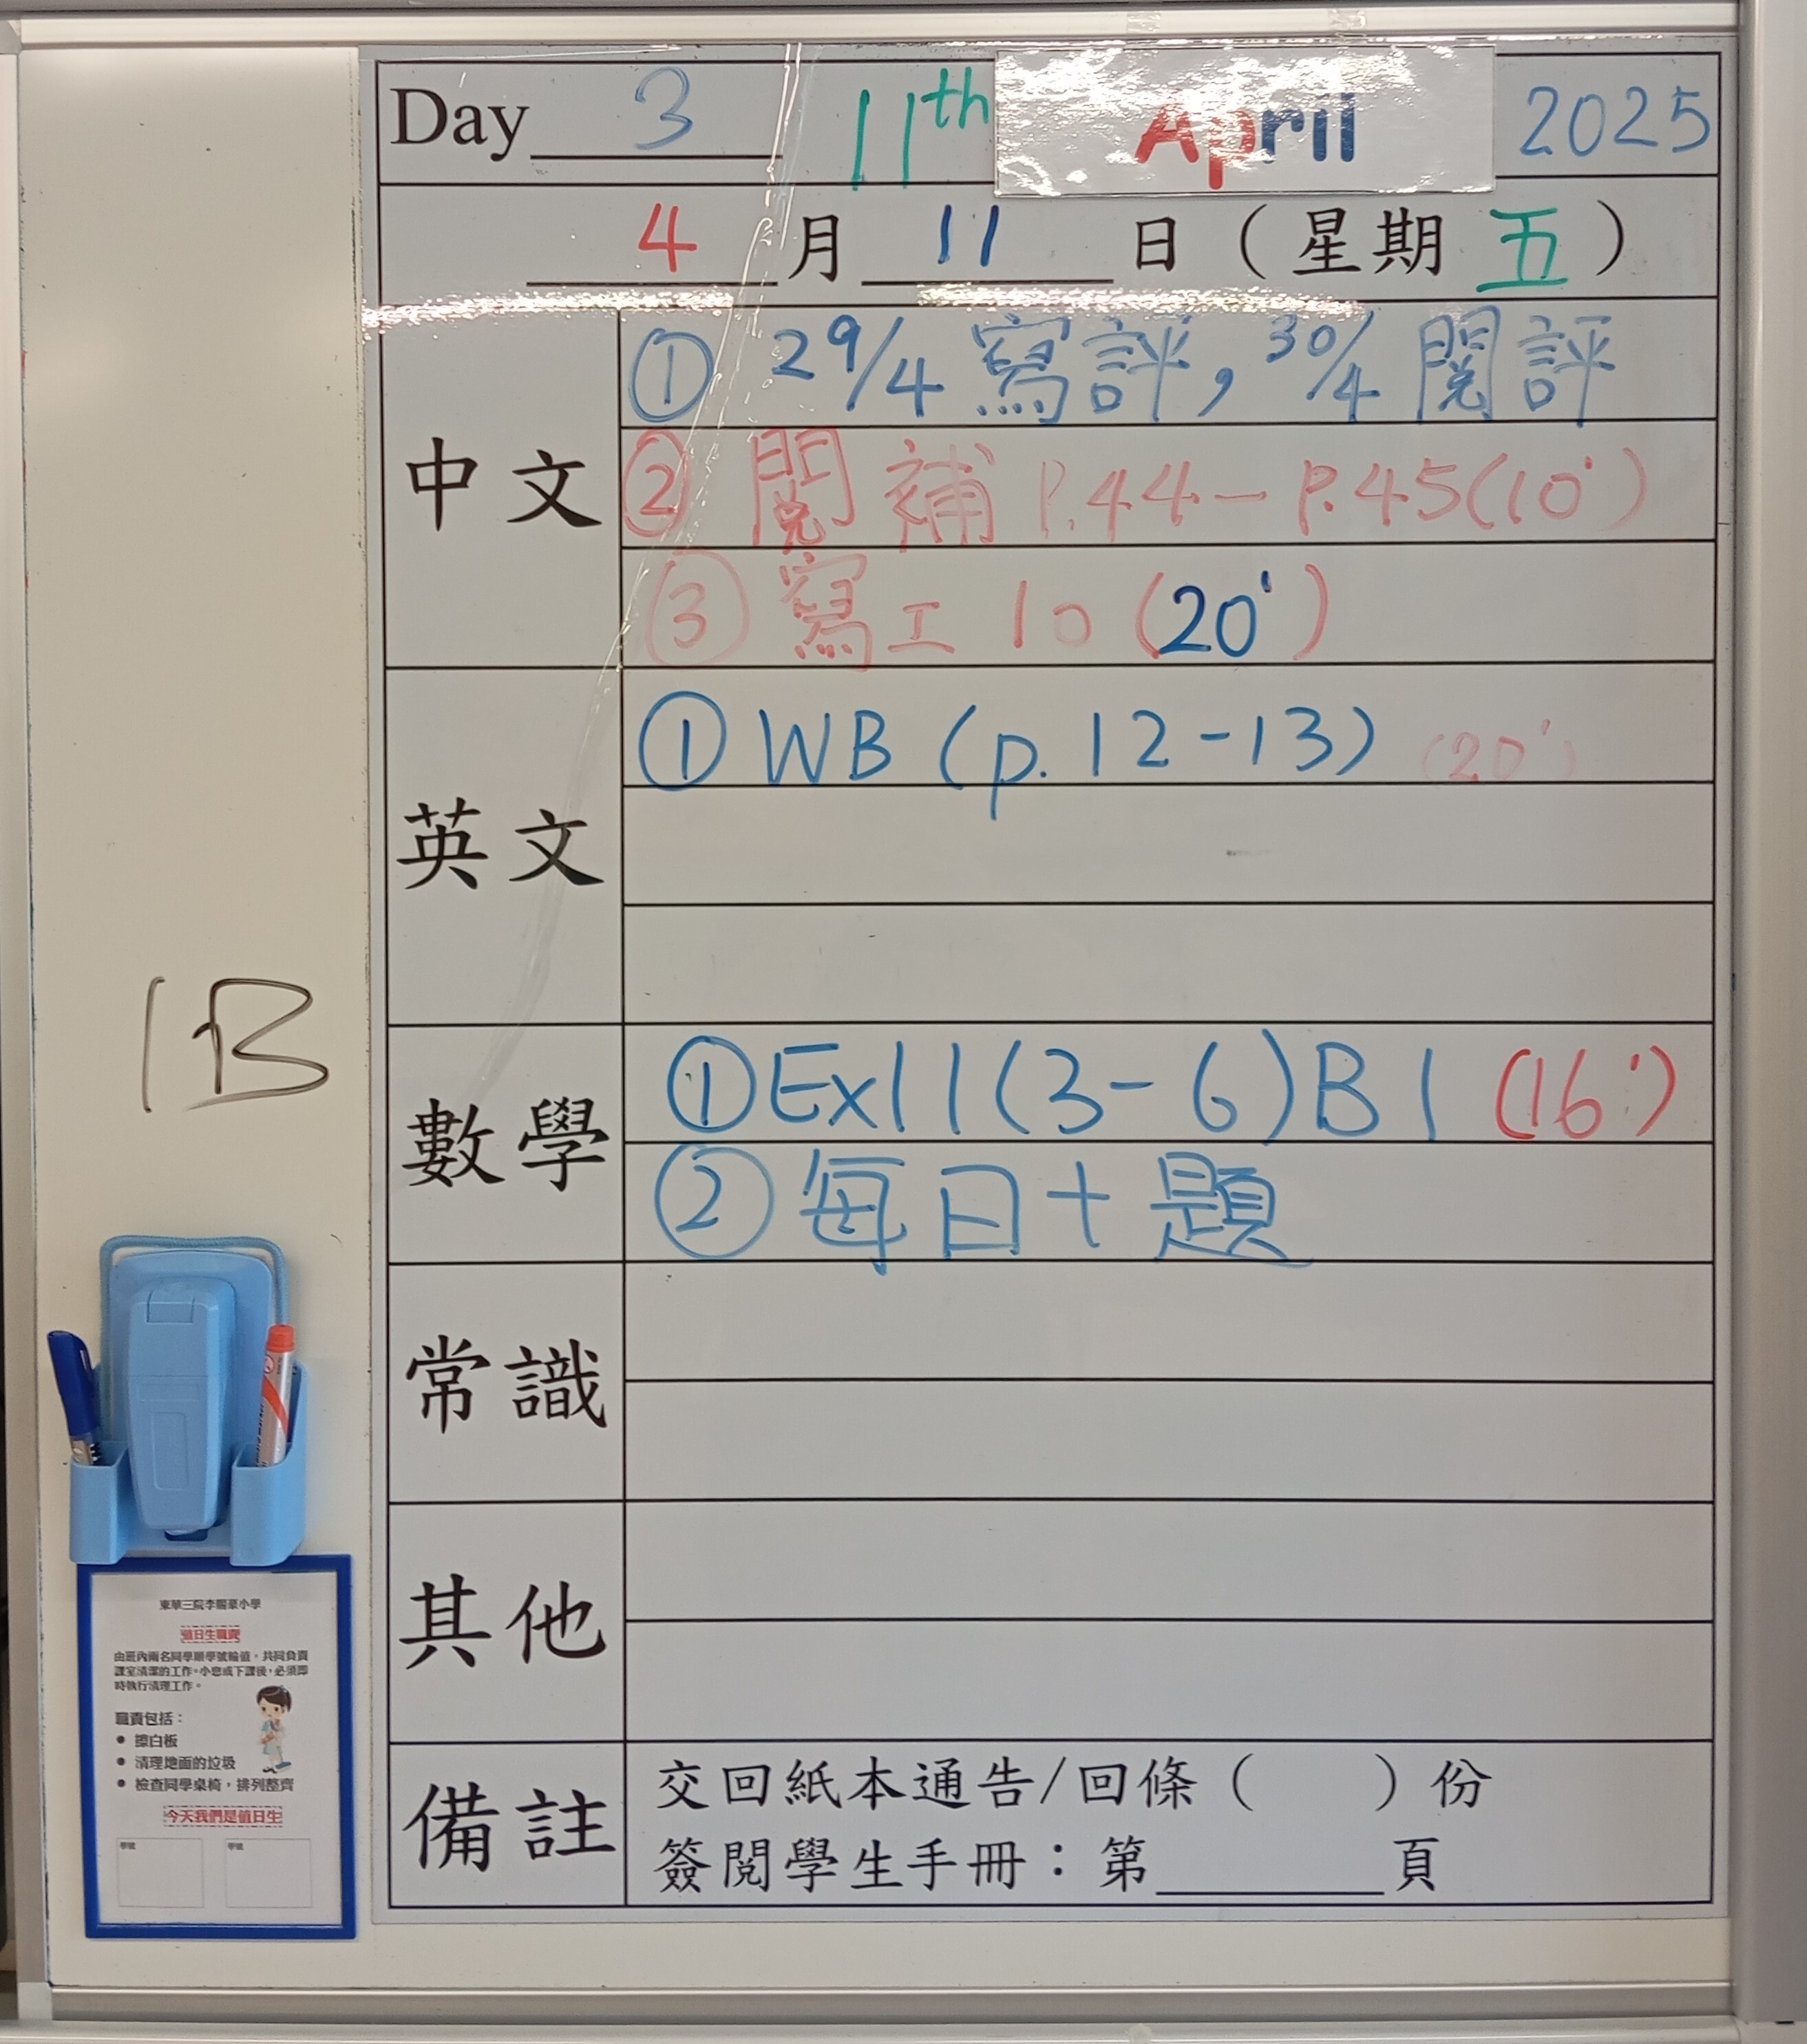 Day 3 11th April 2025
4月11日（星期五）
中文
① 29/4 寫評, 30/4 閱評
② 閱補 P.44-P.45(10')
③ 寫工 10 (20')
英文
① WB (p. 12-13) (20')
數學
① Ex11(3-6)B1 (16')
② 每日十題
常識
其他
備註
交回紙本通告/回條（ ）份
簽閱學生手冊：第______頁
1B
東華三院李賜豪小學
值日生職責
由班內兩名同學順學號輪值，共同負責
課室清潔的工作。小息或下課後，必須即
時執行清理工作。
職責包括：
● 擦白板
● 清理地面的垃圾
● 檢查同學桌椅，排列整齊
今天我們是值日生
學號 學號